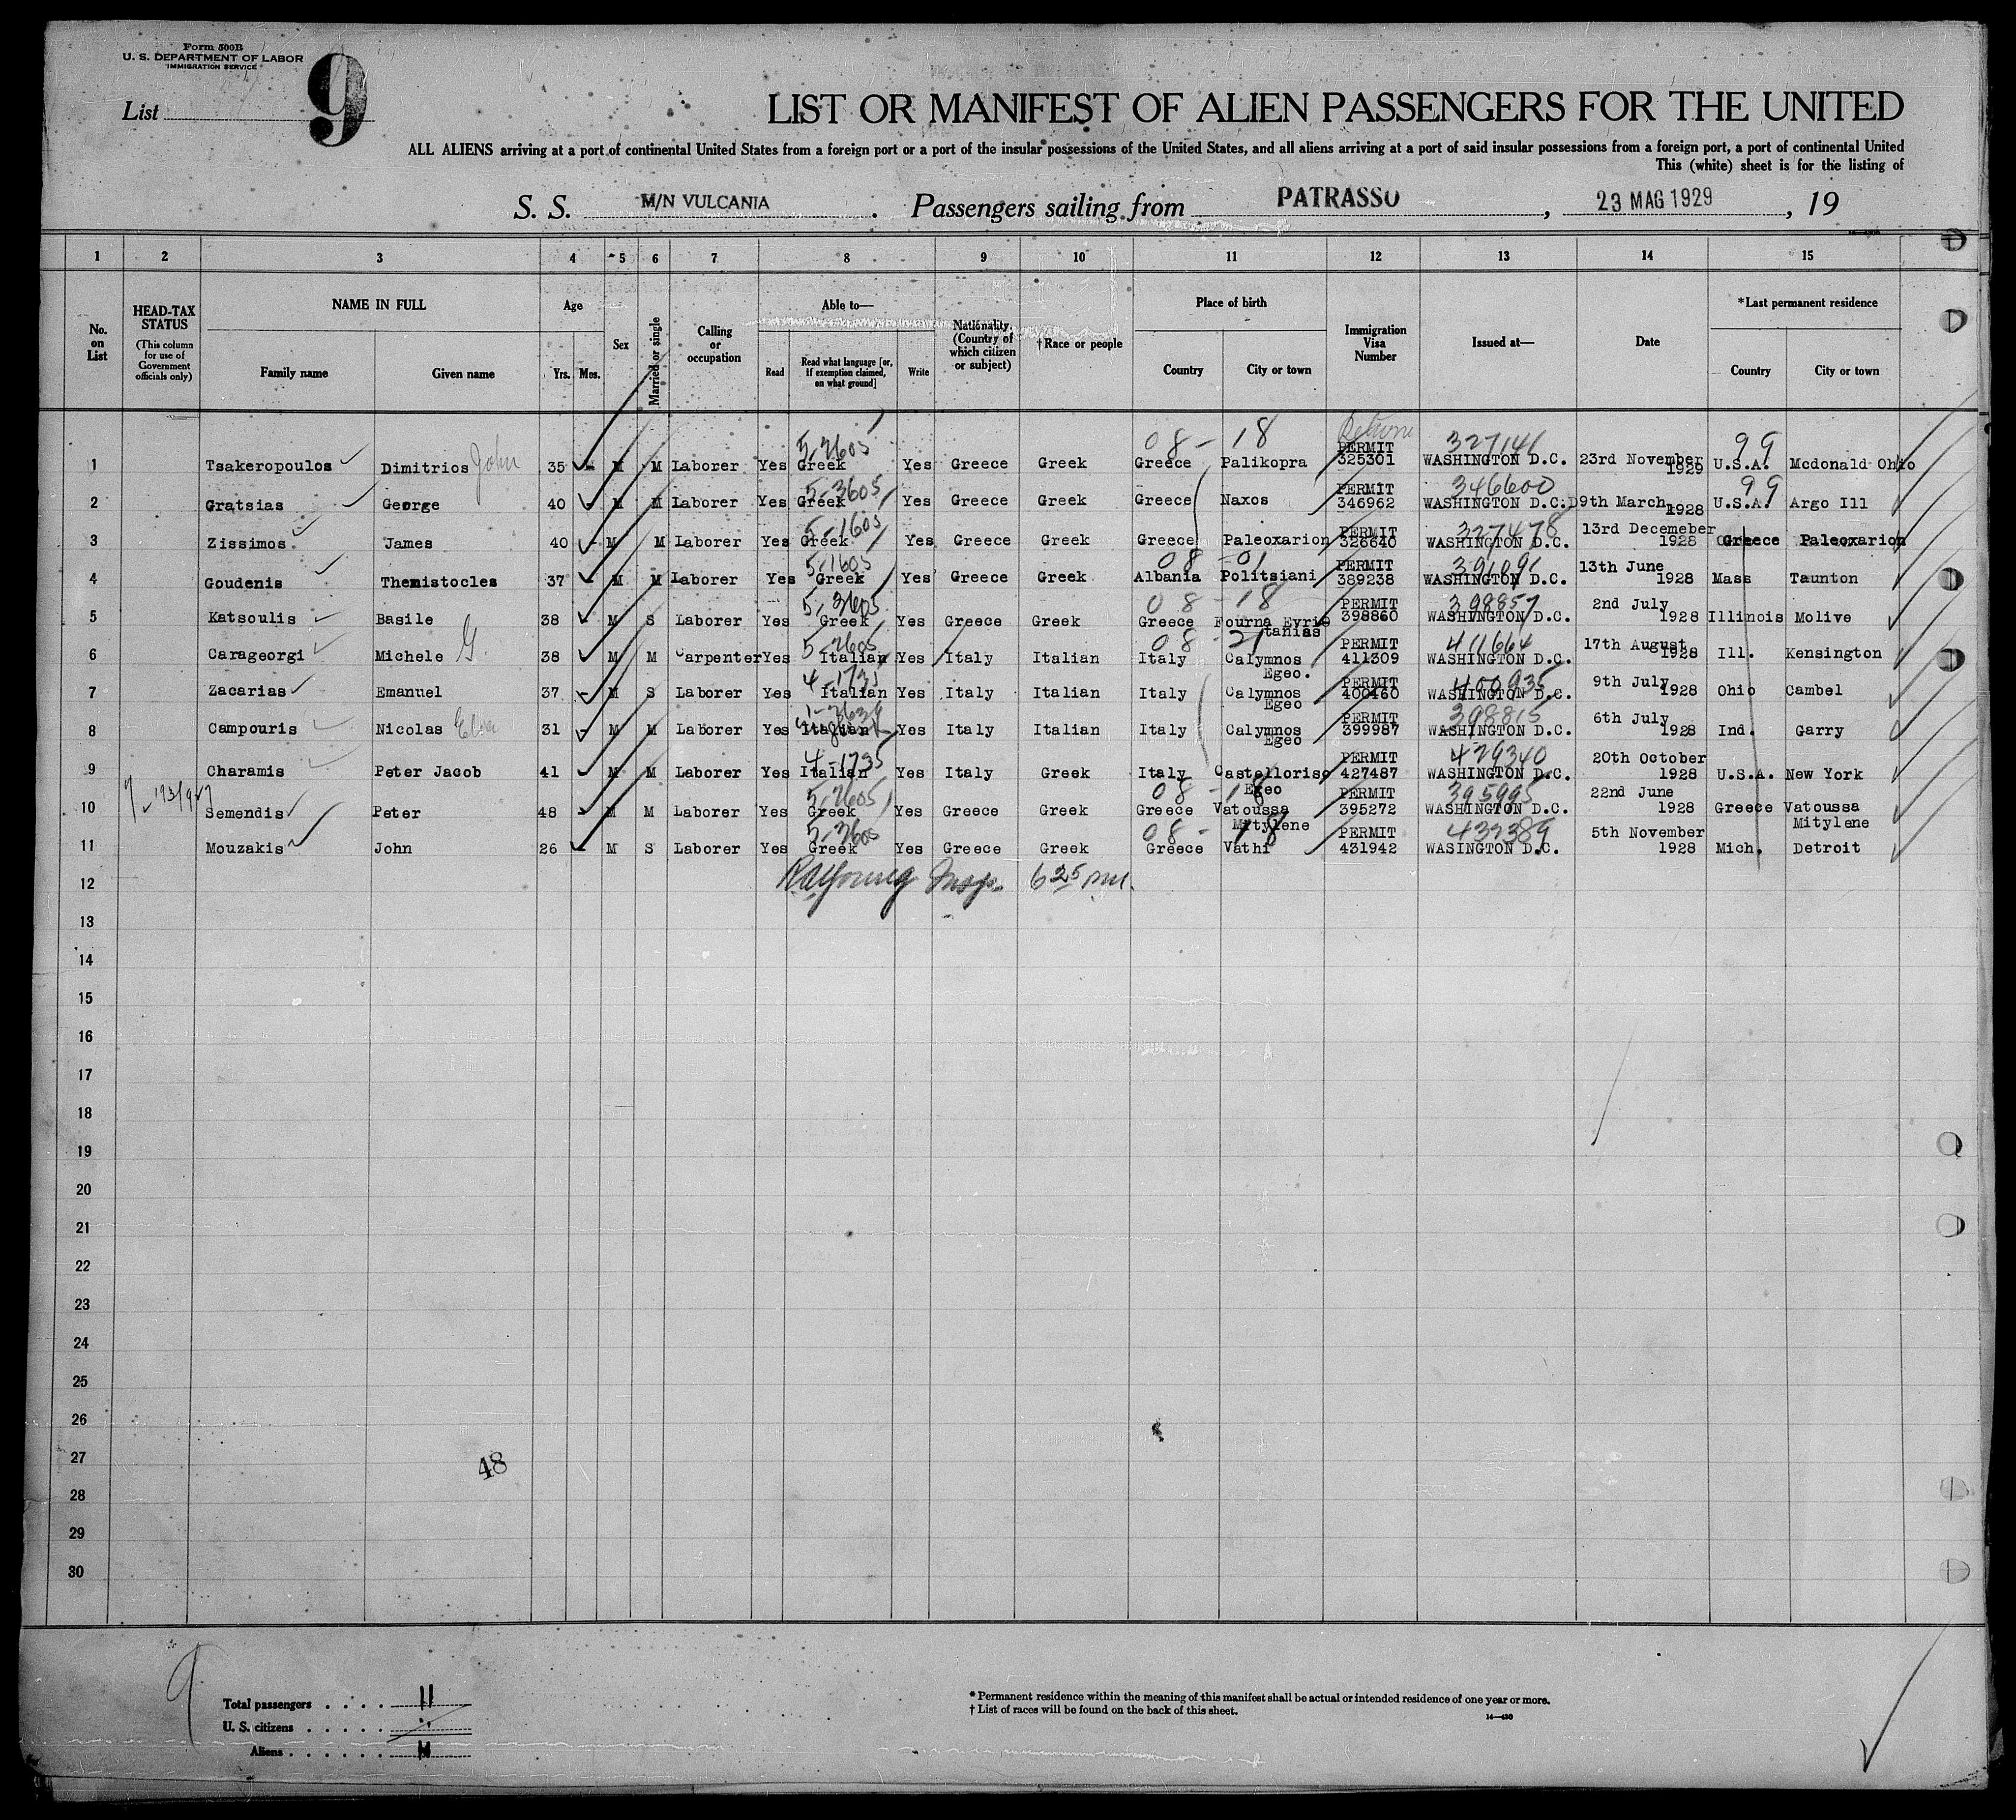 Form 500B
U. S. DEPARTMENT OF LABOR
IMMIGRATION SERVICE
List 9
LIST OR MANIFEST OF ALIEN PASSENGERS FOR THE UNITED
ALL ALIENS arriving at a port of continental United States from a foreign port or a port of the insular possessions of the United States, and all aliens arriving at a port of said insular possessions from a foreign port, a port of continental United
This (white) sheet is for the listing of
S. S. M/N VULCANIA. Passengers sailing from PATRASSO, 23 MAG 1929, 19
1 2 3 4 5 6 7 8 9 10 11 12 13 14 15
No. on List
HEAD-TAX STATUS (This column for use of Government officials only)
NAME IN FULL Family name Given name
Age Yrs. Mos.
Sex
Married or single
Calling or occupation
Able to— Read Read what language [or, if exemption claimed, on what ground] Write
Nationality. (Country of which citizen or subject)
†Race or people
Place of birth Country City or town
Immigration Visa Number
Issued at—
Date
*Last permanent residence Country City or town
5-2605 08-18 Return 327141 99
1 Tsakeropoulos Dimitrios John 35 M M Laborer Yes Greek Yes Greece Greek Greece Palikopra PERMIT 325301 WASHINGTON D.C. 23rd November 1929 U.S.A. Mcdonald Ohio
5-3605 346600 99
2 Gratsias George 40 M M Laborer Yes Greek Yes Greece Greek Greece Naxos PERMIT 346962 WASHINGTON D.C. 9th March 1928 U.S.A. Argo Ill
5-1605 327478
3 Zissimos James 40 M M Laborer Yes Greek Yes Greece Greek Greece Paleoxarion PERMIT 326640 WASHINGTON D.C. 13rd Decemeber 1928 Greece Paleoxarion
5-1605 08-01 391091
4 Goudenis Themistocles 37 M M Laborer Yes Greek Yes Greece Greek Albania Politsiani PERMIT 389238 WASHINGTON D.C. 13th June 1928 Mass Taunton
5-3605 08-18 398857
5 Katsoulis Basile 38 M S Laborer Yes Greek Yes Greece Greek Greece Fourna Eyrytanias PERMIT 398860 WASHINGTON D.C. 2nd July 1928 Illinois Molive
5-2605 08-21 411664
6 Carageorgi Michele G. 38 M M Carpenter Yes Italian Yes Italy Italian Italy Calymnos Egeo. PERMIT 411309 WASHINGTON D.C. 17th August 1928 Ill. Kensington
4-1735 400935
7 Zacarias Emanuel 37 M S Laborer Yes Italian Yes Italy Italian Italy Calymnos Egeo PERMIT 400460 WASHINGTON D.C. 9th July 1928 Ohio Cambel
398815
8 Campouris Nicolas 31 M M Laborer Yes Italian Yes Italy Italian Italy Calymnos Egeo PERMIT 399987 WASHINGTON D.C. 6th July 1928 Ind. Garry
4-1735 429340
9 Charamis Peter Jacob 41 M M Laborer Yes Italian Yes Italy Greek Italy Castelloriso Egeo PERMIT 427487 WASHINGTON D.C. 20th October 1928 U.S.A. New York
5-2605 08-18 395995
10 Semendis Peter 48 M M Laborer Yes Greek Yes Greece Greek Greece Vatoussa Mitylene PERMIT 395272 WASHINGTON D.C. 22nd June 1928 Greece Vatoussa Mitylene
5-3605 08-18 432389
11 Mouzakis John 26 M S Laborer Yes Greek Yes Greece Greek Greece Vathi PERMIT 431942 WASINGTON D.C. 5th November 1928 Mich. Detroit
12 Insp. 625 pm.
13
14
15
16
17
18
19
20
21
22
23
24
25
26
27
48
28
29
30
9
Total passengers . . . . 11
U. S. citizens . . . . .
Aliens . . . . . . 11
* Permanent residence within the meaning of this manifest shall be actual or intended residence of one year or more.
† List of races will be found on the back of this sheet.
14—430